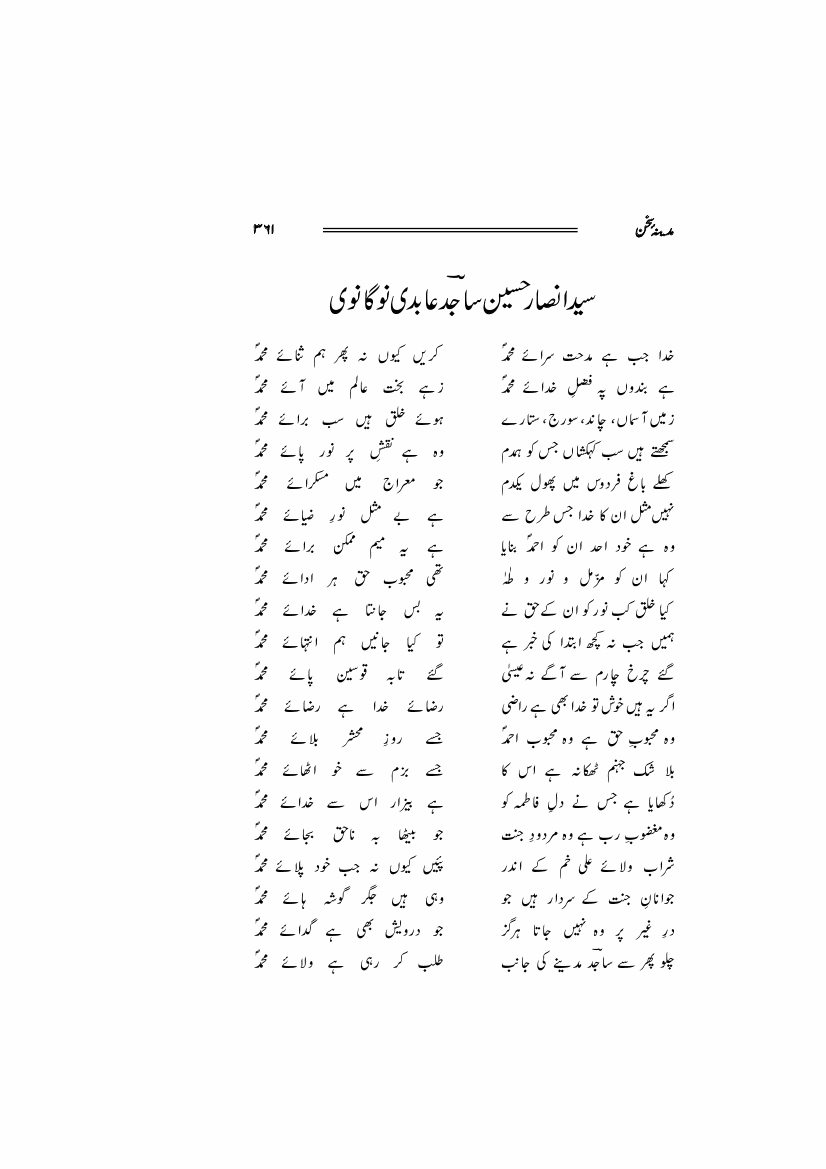 مدینۂ سخن ۳۶۱
سید انصار حسین ساجدؔ عابدی نوگانوی
خدا جب ہے مدحت سرائے محمدؐ کریں کیوں نہ پھر ہم ثنائے محمدؐ
ہے بندوں پہ فضلِ خدائے محمدؐ زہے بخت عالم میں آئے محمدؐ
زمیں آسماں، چاند، سورج، ستارے ہوئے خلق ہیں سب برائے محمدؐ
سمجھتے ہیں سب کہکشاں جس کو ہمدم وہ ہے نقشِ پر نور پائے محمدؐ
کھلے باغ فردوس میں پھول یکدم جو معراج میں مسکرائے محمدؐ
نہیں مثل ان کا خدا جس طرح سے ہے بے مثل نورِ ضیائے محمدؐ
وہ ہے خود احد ان کو احمدؐ بنایا ہے یہ میم ممکن برائے محمدؐ
کہا ان کو مزّمل و نور و طہٰ تھی محبوب حق ہر ادائے محمدؐ
کیا خلق کب نور کو ان کے حق نے یہ بس جانتا ہے خدائے محمدؐ
ہمیں جب نہ کچھ ابتدا کی خبر ہے تو کیا جانیں ہم انتہائے محمدؐ
گئے چرخِ چارم سے آگے نہ عیسیٰ گئے تابہ قوسین پائے محمدؐ
اگر یہ ہیں خوش تو خدا بھی ہے راضی رضائے خدا ہے رضائے محمدؐ
وہ محبوبِ حق ہے وہ محبوب احمدؐ جسے روزِ محشر بلائے محمدؐ
بلا شک جہنم ٹھکانہ ہے اس کا جسے بزم سے خو اٹھائے محمدؐ
دُکھایا ہے جس نے دلِ فاطمہ کو ہے بیزار اس سے خدائے محمدؐ
وہ مغضوبِ رب ہے وہ مردودِ جنت جو بیٹھا بہ ناحق بجائے محمدؐ
شراب ولائے علی خم کے اندر پئیں کیوں نہ جب خود پلائے محمدؐ
جوانانِ جنت کے سردار ہیں جو وہی ہیں جگر گوشہ ہائے محمدؐ
درِ غیر پر وہ نہیں جاتا ہرگز جو درویش بھی ہے گدائے محمدؐ
چلو پھر سے ساجدؔ مدینے کی جانب طلب کر رہی ہے ولائے محمدؐ